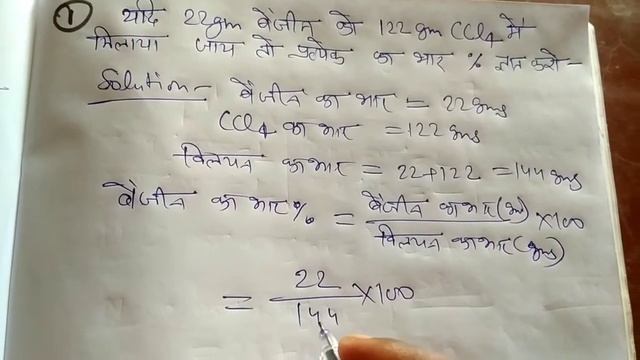 ① यदि 22gm बेंजीन को 122gm CCl4 में
मिलाया जाय तो प्रत्येक का भार % ज्ञात करो-
Solution- बेंजीन का भार = 22gms
CCl4 का भार = 122 gms
विलयन का भार = 22+122 = 144 gms
बेंजीन का भार % = बेंजीन का भार(gm) ×100
विलयन का भार(gms)
= 22 ×100
144